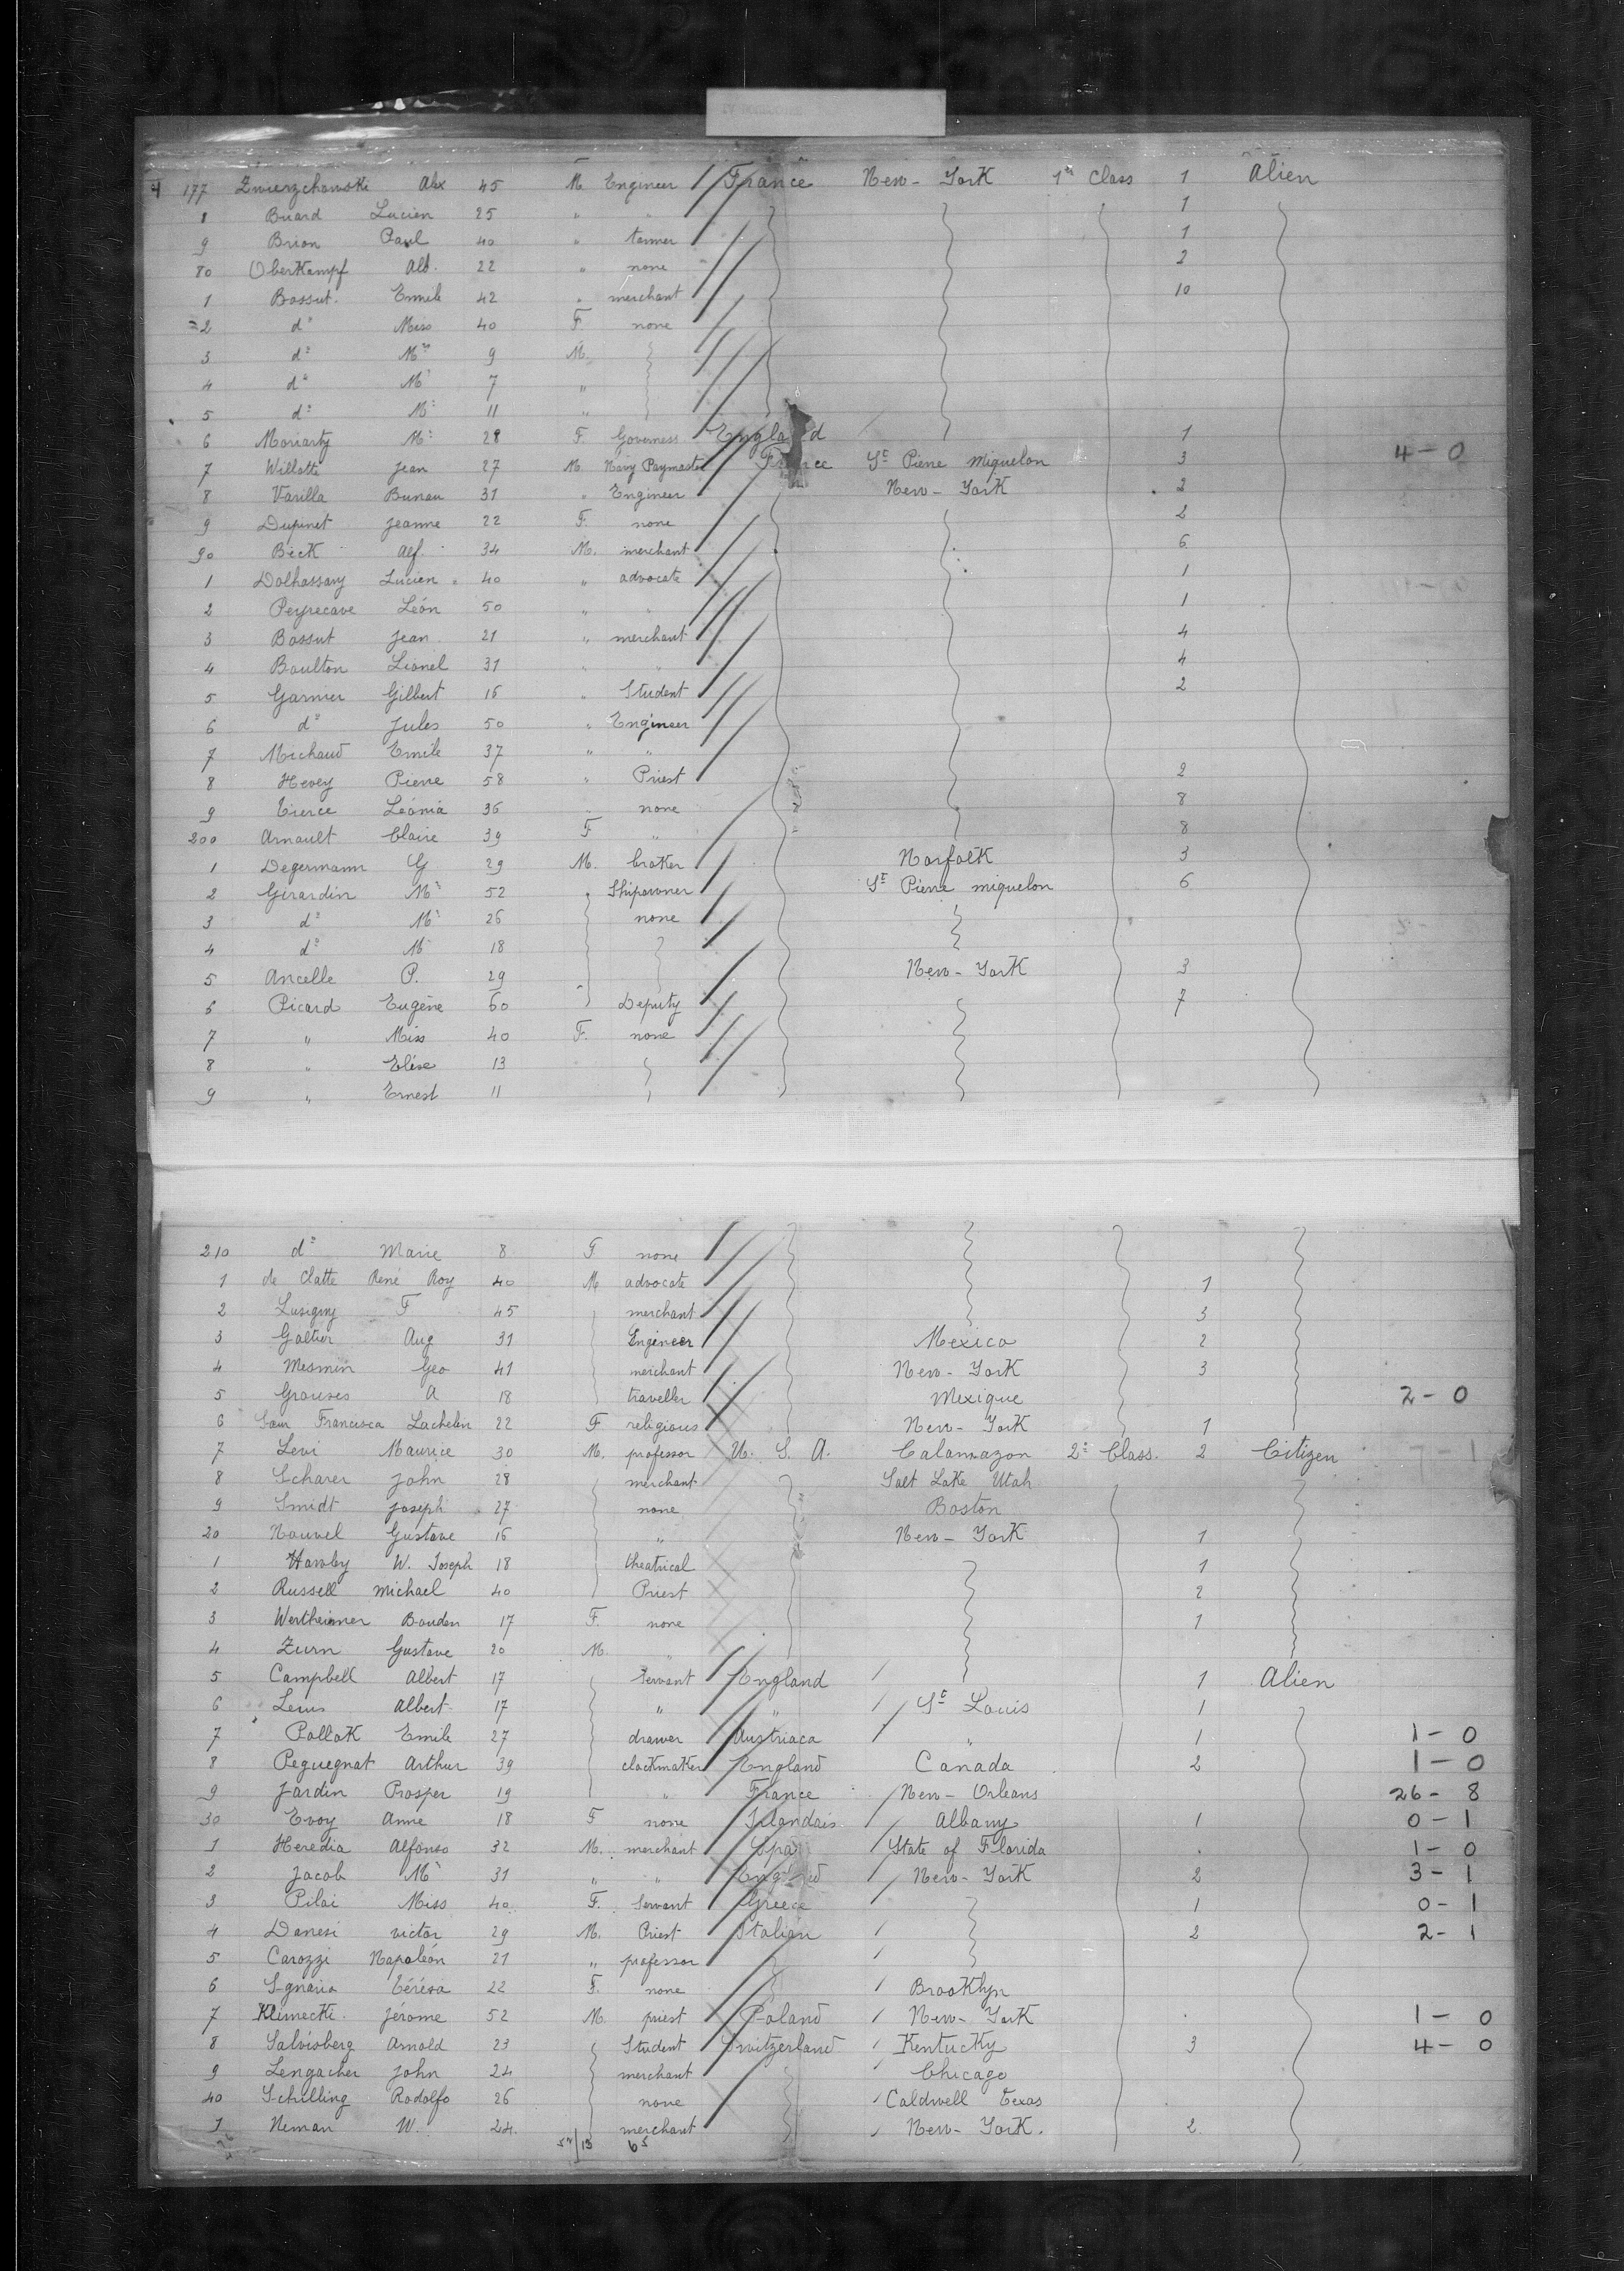 4 177 Zwierzchowski Alex 45 M Engineer France New-York 1re Class 1 Alien
8 Buard Lucien 25 " " 1
9 Brion Paul 40 " tanner 1
80 Oberkampf Alb. 22 " none 2
1 Bossut. Emile 42 " merchant 10
2 do Miss 40 F none
3 do Mr 9 M.
4 do Mr 7 "
5 do Mr 11 "
6 Moriarty M 28 F. Governess England 1
7 Willotte Jean 27 M. Navy Paymaster France St Pierre Miquelon 3 4-0
8 Varilla Bunau 31 " Engineer New-York 2
9 Dupinet Jeanne 22 F. none 2
90 Beck Alf. 34 M. merchant 6
1 Dolhassary Lucien 40 " advocate 1
2 Peyrecave Léon 50 " " 1
3 Bossut Jean 21 " merchant 4
4 Boulton Lionel 31 " " 4
5 Garnier Gilbert 16 " Student 2
6 do Jules 50 " Engineer
7 Michaud Emile 37 " "
8 Hevey Pierre 58 " Priest 2
9 Tierce Léonia 36 " none 8
200 Arnault Claire 39 F " 8
1 Degermann G 29 M. broker Norfolk 3
2 Girardin Mr 52 " Shipowner St Pierre miquelon 6
3 do Mr 26 none
4 do M 18
5 Ancelle P. 29 New-York 3
6 Picard Eugène 60 Deputy 7
7 " Miss 40 F. none
8 " Elise 13
9 " Ernest 11
210 do Marie 8 F none
1 de Clatte René Roy 40 M advocate 1
2 Lusigny F 45 merchant 3
3 Galtier Aug 31 Engineer Mexico 2
4 Mesmin Geo 41 merchant New-York 3
5 Grouses A 18 traveller Mexique 2-0
6 Soeur Francisca Lachelin 22 F religious New-York 1
7 Levi Maurice 30 M. professor U. S. A. Calamazon 2e Class. 2 Citizen
8 Scharer John 28 merchant Salt Lake Utah
9 Smidt Joseph 27 none Boston
20 Nouvel Gustave 16 " New-York 1
1 Hawley W. Joseph 18 theatrical 1
2 Russell Michael 40 Priest 2
3 Wertheimer Bauden 17 F. none 1
4 Zurn Gustave 20 M "
5 Campbell Albert 17 Servant England 1 Alien
6 Albert 17 " " St Louis 1
7 Pollak Emile 27 drawer Austriaca " 1 1-0
8 Peguegnat Arthur 39 clockmaker England Canada 2 1-0
9 Jardin Prosper 19 " France New-Orleans 26-8
30 Evoy Anne 18 F none Islandais Albany 1 0-1
1 Heredia Alfonso 32 M. merchant Spa State of Florida 1-0
2 Jacob Mr 31 " " England New-York 2 3-1
3 Pilai Miss 40 F. Servant Greece 1 0-1
4 Danesi victor 29 M. Priest Italian 2 2-1
5 Carozzi Napoléon 21 " professor
6 Sgnaria Térésa 22 F. none Brooklyn
7 Klimecki Jérome 52 M. priest Poland New-York 1-0
8 Salvisberg Arnold 23 Student Switzerland Kentucky 3 4-0
9 Lengacher John 24 merchant Chicago
40 Schilling Rodolfo 26 none Caldwell Texas
1 Neman W. 24 merchant New-York. 2
13 65